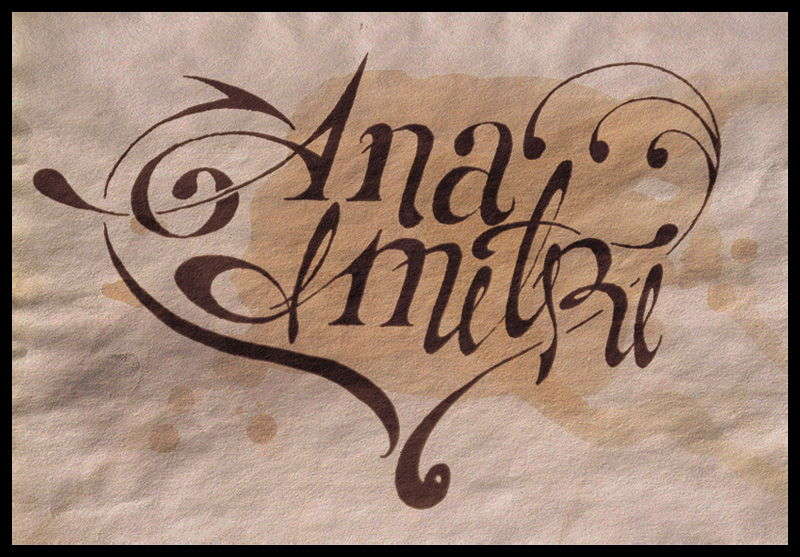 Ana
Dmitri